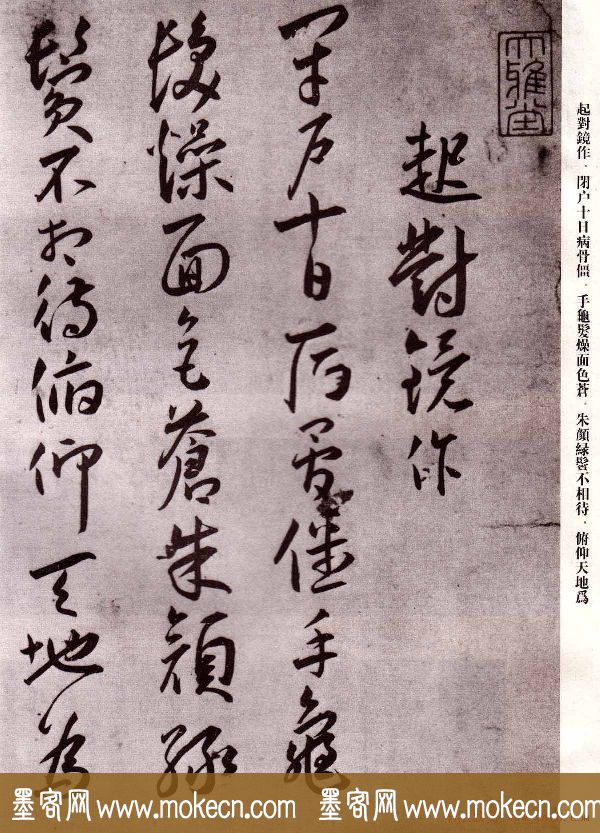 起對鏡作．閉户十日病骨僵．手龜髮燥面色蒼．朱顔緑鬢不相待．俯仰天地爲
大雅堂
起對鏡作
閉户十日病骨僵手龜
髮燥面色蒼朱顔緑
鬢不相待俯仰天地為
墨客网 www.mokecn.com 墨客网 www.mokecn.com